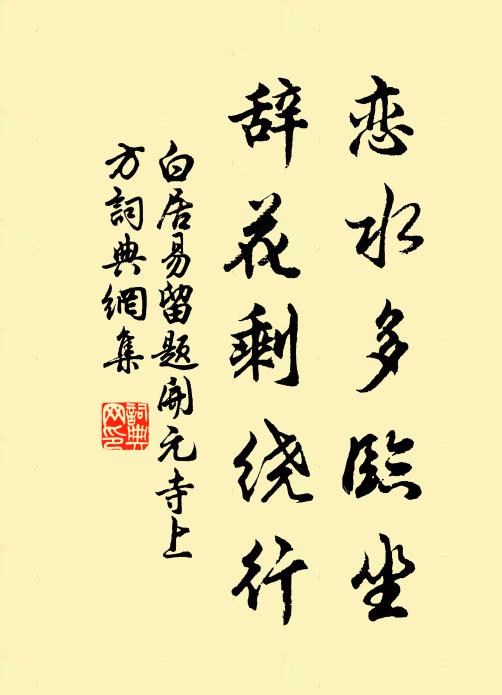 恋水多臨坐
辞花剩绕行
白居易留題開元寺上
方詞典網集
詞典
网印